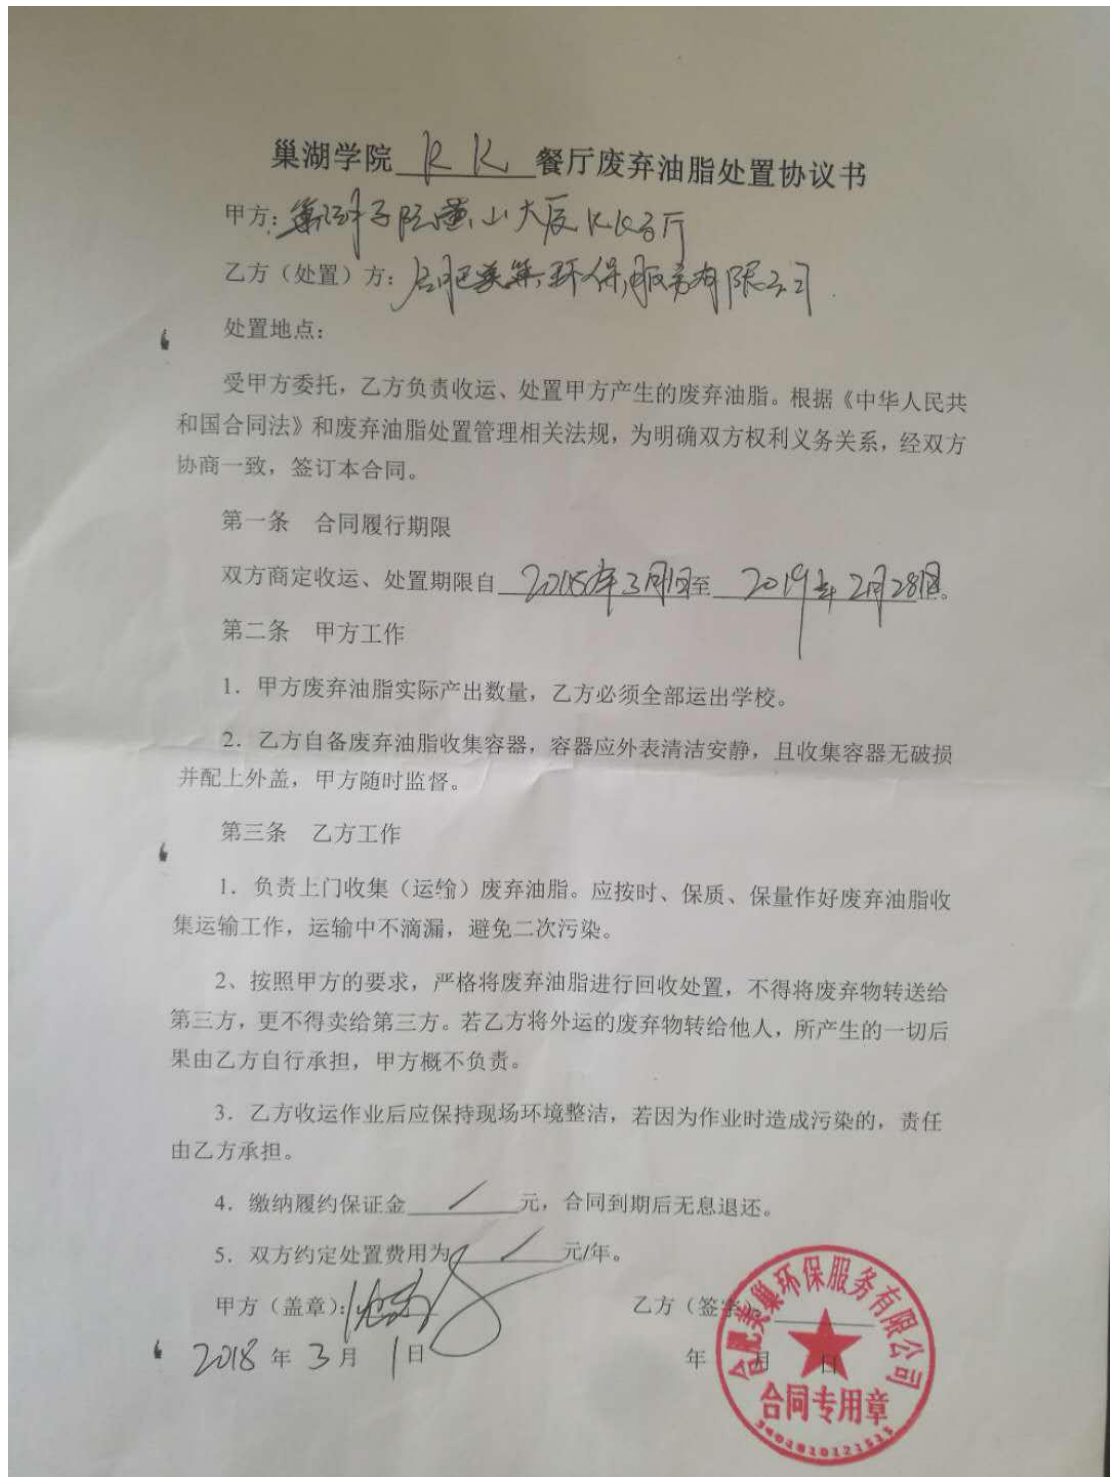 巢湖学院 KK 餐厅废弃油脂处置协议书
甲方：巢湖学院黄山大厦KK餐厅
乙方（处置）方：合肥美巢环保服务有限公司
处置地点：
受甲方委托，乙方负责收运、处置甲方产生的废弃油脂。根据《中华人民共
和国合同法》和废弃油脂处置管理相关法规，为明确双方权利义务关系，经双方
协商一致，签订本合同。
第一条 合同履行期限
双方商定收运、处置期限自 2018年3月1日至 2019年2月28日。
第二条 甲方工作
1．甲方废弃油脂实际产出数量，乙方必须全部运出学校。
2．乙方自备废弃油脂收集容器，容器应外表清洁安静，且收集容器无破损
并配上外盖，甲方随时监督。
第三条 乙方工作
1．负责上门收集（运输）废弃油脂。应按时、保质、保量作好废弃油脂收
集运输工作，运输中不滴漏，避免二次污染。
2、按照甲方的要求，严格将废弃油脂进行回收处置，不得将废弃物转送给
第三方，更不得卖给第三方。若乙方将外运的废弃物转给他人，所产生的一切后
果由乙方自行承担，甲方概不负责。
3．乙方收运作业后应保持现场环境整洁，若因为作业时造成污染的，责任
由乙方承担。
4．缴纳履约保证金 / 元，合同到期后无息退还。
5．双方约定处置费用为 / 元/年。
甲方（盖章）： 乙方（签字
2018 年 3 月 1 日 年 月 日
合肥美巢环保服务有限公司
合同专用章
3401810121515